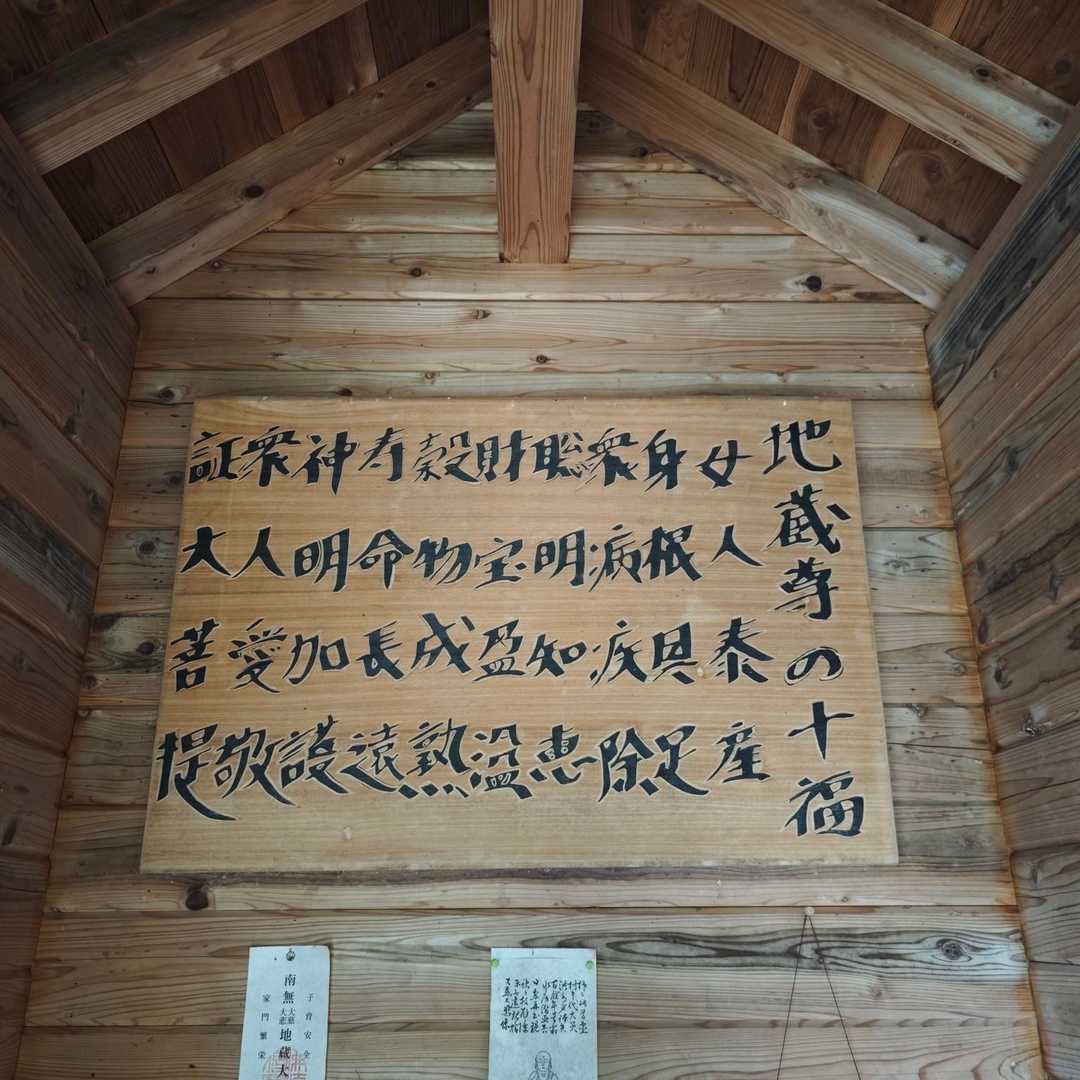 地蔵尊の十福
女人泰産
身根具足
衆病疾除
聡明知恵
財宝盈溢
穀物成熟
寿命長遠
神明加護
衆人愛敬
証大菩提
子育安全
南無大慈大悲地蔵大
家門繁栄